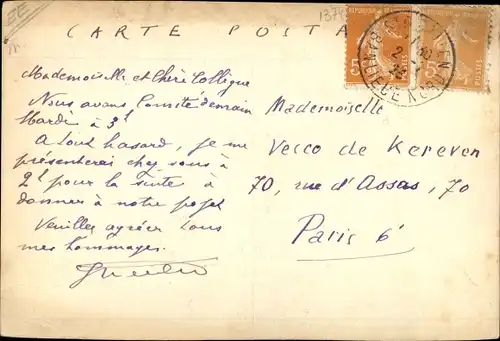 CARTE POSTA
Mademoiselle et Chère Collègue
Nous avons Comité demain
Mardi à 3h
A tout hasard, je me
présenterai chez vous à
2h pour la suite à
donner à notre projet
Veuillez agréer tous
mes hommages.
Mademoiselle
Vecco de Kereven
70, rue d'Assas, 70
Paris 6e